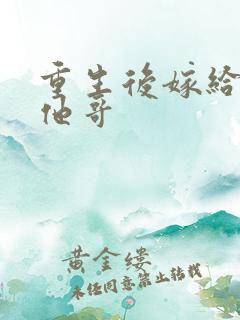 重生後嫁給
他哥
黃金縷
未任同意禁止轉載